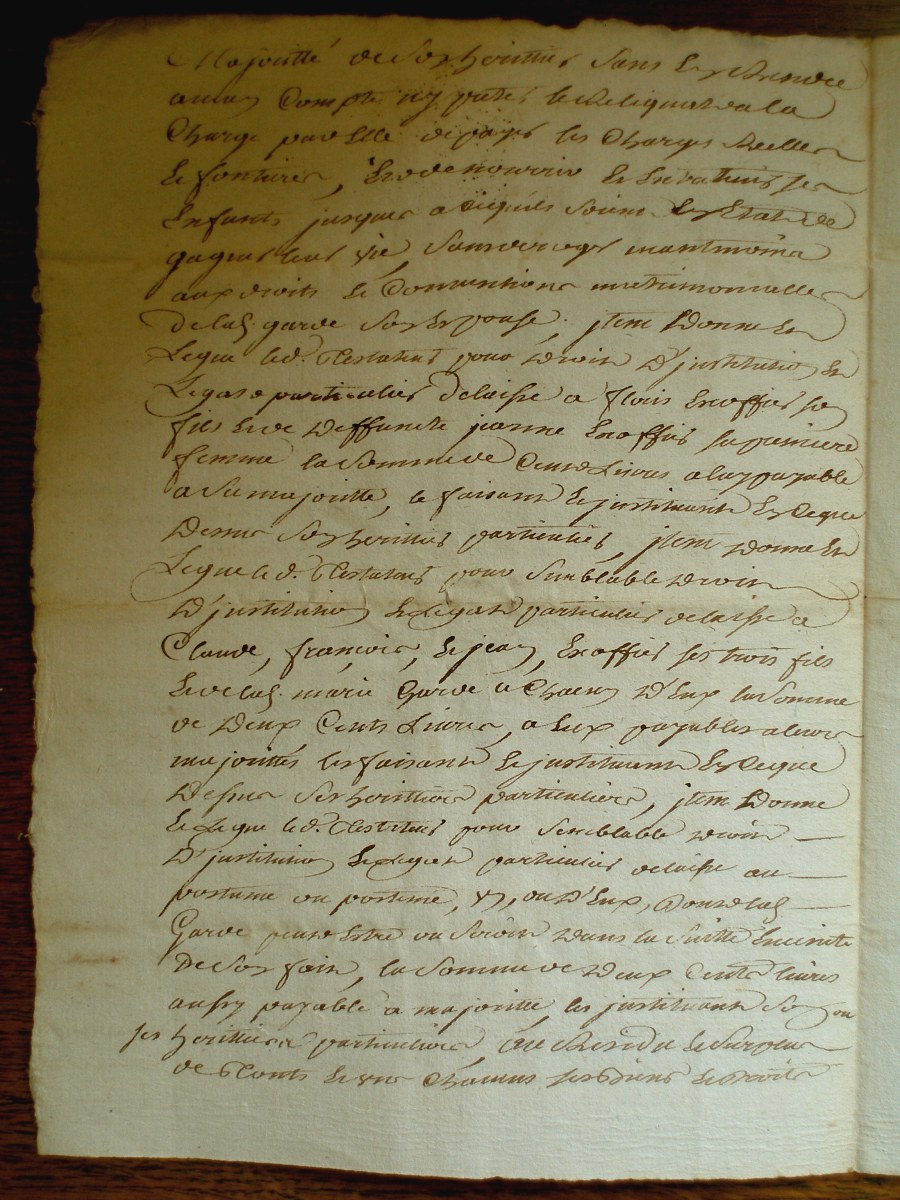 Majoritté de son herittier sans En Rendre
aucun Compte ny preter le Reliquat a la
Charge par Elle de payer les Charges Reelles
Et fontieres, Et de nourrir Et Entretenir ses
Enfants jusques a ce quils soient En Etat de
gagner leur vie, sans deroger neantmoins
aux droits Et Conventions matrimonielles
De lad. garde son Epouse. jtem Donne Et
Legue led. Testateur pour Droit D'justitution Et
Legat particulier delaisse a flois Exoffier son
fils Et de Deffuncte jeanne Exoffier sa premiere
femme la somme de Cent Livres a luy payable
a sa majoritte, le faisant Et justituant En Ce que
Dessus son herittier particulier, jtem Donne Et
Legue led. Testateur pour semblable Droit
D'justitution Et Legat particulier delaisse a
Claude, françois, Et jean, Exoffier ses trois fils
Et de lad. marie Garde a Chacun D'Eux la somme
de Deux Cents Livres, a Eux payables a leurs
majorittés les faisant Et justituant En Ce que
Dessus ses herittiers particuliers, jtem Donne
Et Legue led. Testateur pour semblable Droit
D'justitution Et Legat particulier delaisse au
postume ou postume, ou D'Eux, Dont lad.
Garde peut Etre ou seroit Dans la suitte Enceinte
De son fait, la somme de Deux Cents livres
aussy payable a majoritte, les justituant son ou
ses herittiers particuliers, Au Residu Et surplus
de Touts Et uns Chacuns ses Biens Et Droits